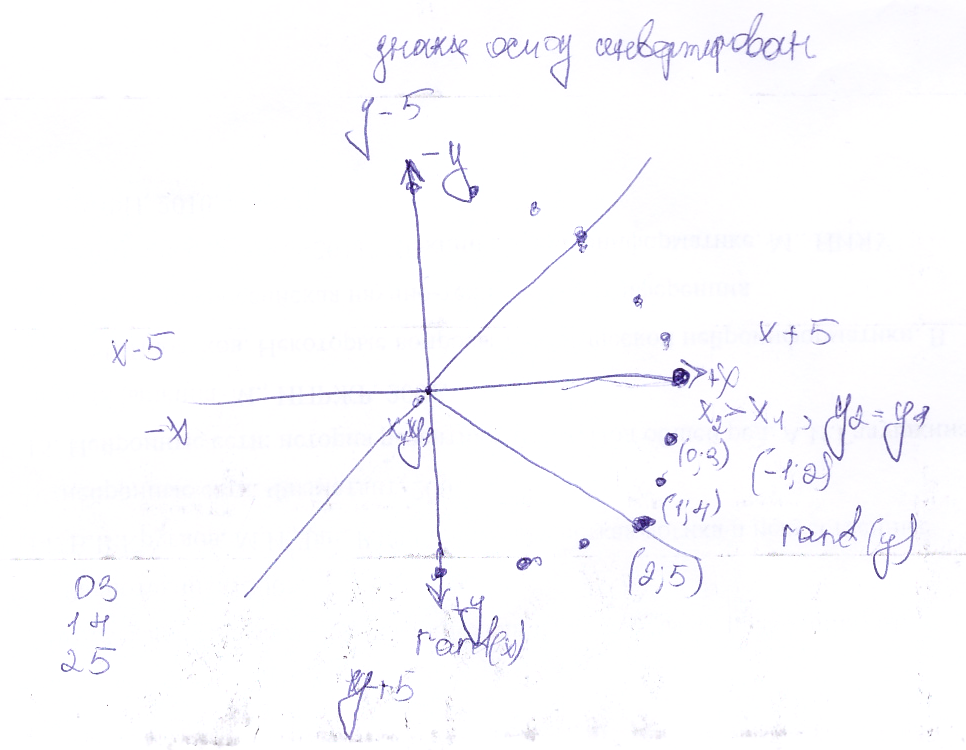 знак оси y инвертирован
y-5
-y
x+5
x-5
+x
-x
x₁y₁
x₂>x₁, y₂=y₁
(0;3)
(-1;2)
(1;4)
rand(y)
(2;5)
03
14
25
+y
rand(x)
y+5